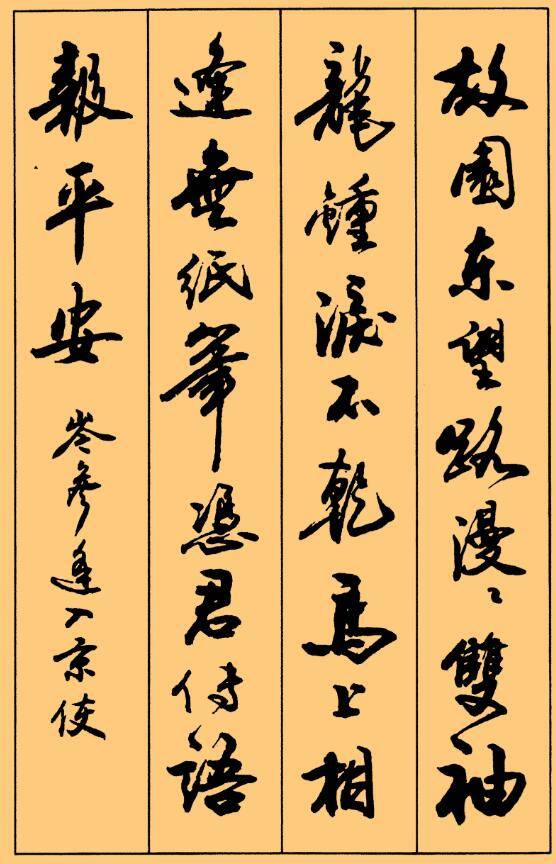 故園東望路漫〻雙袖
龍鍾淚不乾馬上相
逢無紙筆憑君傳語
報平安 岑參逢入京使